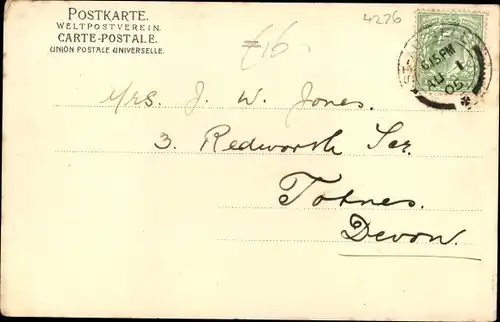 POSTKARTE.
WELTPOSTVEREIN.
CARTE-POSTALE.
UNION POSTALE UNIVERSELLE.
4276
€16-
8.15 PM
AU 1
05
Mrs. J. W. Jones.
3. Redworth Ter.
Totnes.
Devon.